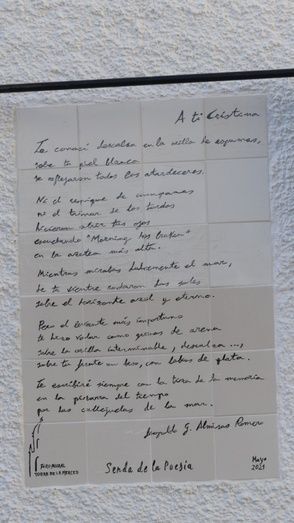 A ti Cristina
Te conocí descalza en la orilla de espumas,
sobre tu piel blanca
se reflejaron todos los atardeceres.
Ni el repique de campanas
ni el trinar de los tordos
hicieron abrir tus ojos
escuchando "Morning has broken"
en la azotea más alta.
Mientras mirabas dulcemente el mar,
de tu vientre cantaron los soles
sobre el horizonte azul y eterno.
Pero el levante más importuno
te hizo volar como granos de arena
sobre la orilla interminable, descalza...,
sobre tu frente un beso, con labios de plata.
Te escribiré siempre con la tiza de la memoria
en la pizarra del tiempo
por las callejuelas de la mar.
Leopoldo G. Almisas Romero
Senda de la Poesía
Mayo